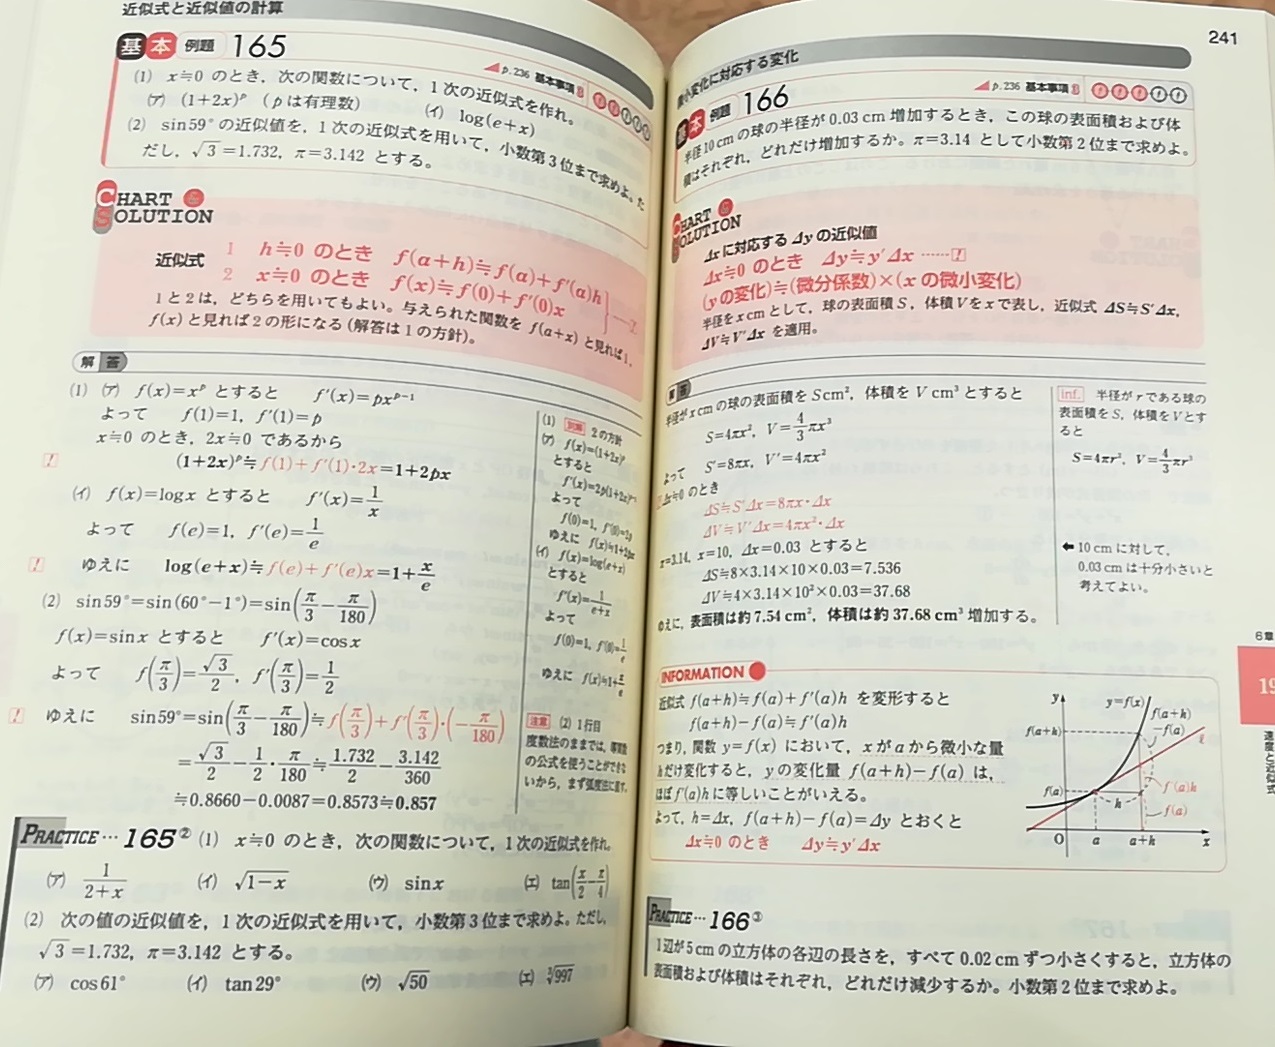 近似式と近似値の計算
基本 例題 165
p.236 基本事項 3
(1) x≒0 のとき，次の関数について，1次の近似式を作れ。
(ア) (1+2x)^p (pは有理数) (イ) log(e+x)
(2) sin59°の近似値を，1次の近似式を用いて，小数第3位まで求めよ。た
だし，√3=1.732，π=3.142 とする。
CHART &
SOLUTION
近似式 1 h≒0 のとき f(a+h)≒f(a)+f'(a)h
2 x≒0 のとき f(x)≒f(0)+f'(0)x
1と2は，どちらを用いてもよい。与えられた関数を f(a+x) と見れば1，
f(x) と見れば2の形になる(解答は1の方針)。
解答
(1) (ア) f(x)=x^p とすると f'(x)=px^{p-1}
よって f(1)=1, f'(1)=p
x≒0 のとき，2x≒0 であるから
(1+2x)^p≒f(1)+f'(1)・2x=1+2px
(イ) f(x)=logx とすると f'(x)=1/x
よって f(e)=1, f'(e)=1/e
ゆえに log(e+x)≒f(e)+f'(e)x=1+x/e
(2) sin59°=sin(60°-1°)=sin(π/3-π/180)
f(x)=sinx とすると f'(x)=cosx
よって f(π/3)=√3/2, f'(π/3)=1/2
ゆえに sin59°=sin(π/3-π/180)≒f(π/3)+f'(π/3)・(-π/180)
=√3/2-1/2・π/180≒1.732/2-3.142/360
≒0.8660-0.0087=0.8573≒0.857
(1) 別解 2の方針
(ア) f(x)=(1+2x)^p
とすると
f'(x)=2p(1+2x)^{p-1}
よって
f(0)=1, f'(0)=2p
ゆえに f(x)≒1+2px
(イ) f(x)=log(e+x)
とすると
f'(x)=1/(e+x)
よって
f(0)=1, f'(0)=1/e
ゆえに f(x)≒1+x/e
注意 (2) 1行目
度数法のままでは，導関数
の公式を使うことができな
いから，まず弧度法に直す。
PRACTICE… 165② (1) x≒0 のとき，次の関数について，1次の近似式を作れ。
(ア) 1/(2+x) (イ) √(1-x) (ウ) sinx (エ) tan(x/2-π/4)
(2) 次の値の近似値を，1次の近似式を用いて，小数第3位まで求めよ。ただし，
√3=1.732，π=3.142 とする。
(ア) cos61° (イ) tan29° (ウ) √50 (エ) ∛997
241
微小変化に対応する変化
基本 例題 166
p.236 基本事項 3
半径10cmの球の半径が0.03cm増加するとき，この球の表面積および体
積はそれぞれ，どれだけ増加するか。π=3.14 として小数第2位まで求めよ。
CHART &
SOLUTION
Δxに対応するΔyの近似値
Δx≒0 のとき Δy≒y'Δx ……!
(yの変化)≒(微分係数)×(xの微小変化)
半径をxcmとして，球の表面積S，体積Vをxで表し，近似式 ΔS≒S'Δx，
ΔV≒V'Δx を適用。
解答
半径がxcmの球の表面積をScm²，体積をVcm³とすると
S=4πx², V=4/3πx³
よって S'=8πx, V'=4πx²
Δx≒0 のとき
ΔS≒S'Δx=8πx・Δx
ΔV≒V'Δx=4πx²・Δx
π=3.14, x=10, Δx=0.03 とすると
ΔS≒8×3.14×10×0.03=7.536
ΔV≒4×3.14×10²×0.03=37.68
ゆえに，表面積は約7.54cm²，体積は約37.68cm³増加する。
inf. 半径がrである球の
表面積をS，体積をVとす
ると
S=4πr², V=4/3πr³
← 10cmに対して，
0.03cmは十分小さいと
考えてよい。
INFORMATION
近似式 f(a+h)≒f(a)+f'(a)h を変形すると
f(a+h)-f(a)≒f'(a)h
つまり，関数 y=f(x) において，xがaから微小な量
hだけ変化すると，yの変化量 f(a+h)-f(a) は，
ほぼf'(a)hに等しいことがいえる。
よって，h=Δx, f(a+h)-f(a)=Δy とおくと
Δx≒0 のとき Δy≒y'Δx
y
y=f(x)
f(a+h)
f(a+h)
-f(a)
ℓ
f(a)
h
f'(a)h
f(a)
O a a+h x
6章
19
速度と近似式
PRACTICE… 166③
1辺が5cmの立方体の各辺の長さを，すべて0.02cmずつ小さくすると，立方体の
表面積および体積はそれぞれ，どれだけ減少するか。小数第2位まで求めよ。